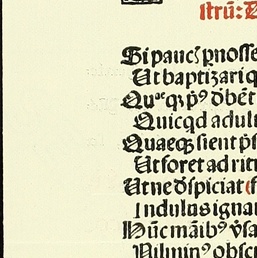 ſtrū: D
Si paucꝭ ꝓnoſſe
Ut baptizari q
Quᵃᵉqꝫ pꝰ dꝫbēt
Quicqd adult
Quaeqꝫ ſient pſ
Ut foret ad rit
Ut ne diſpiciat
Indulus ignar
Hūc māibꝰ vſa
Nilminꝰ obſc